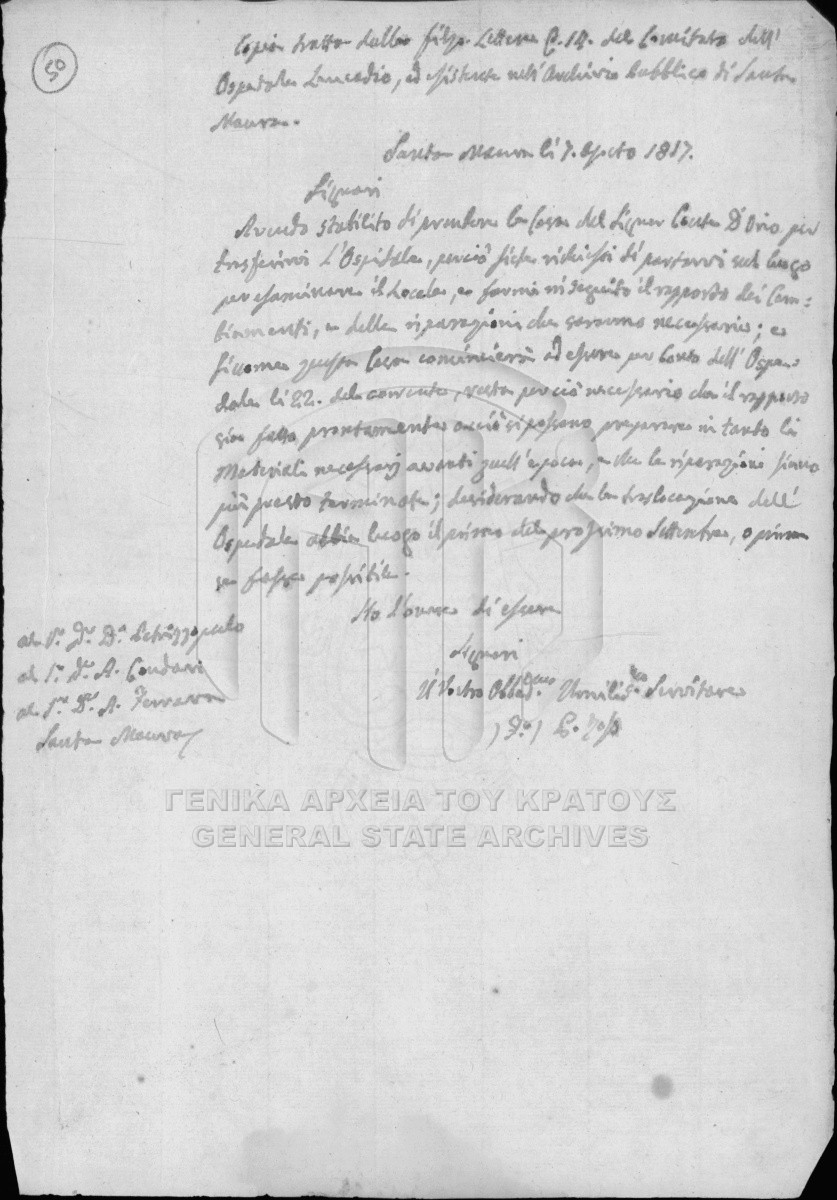 50
Copia tratta dalla filza Lettere C. 14. del Comitato dell'
Ospedale Leucadio, ed esistente nell'Archivio Pubblico di Santa
Maura.
Santa Maura li 7. Agosto 1817.
Signori
Avendo stabilito di prendere la Casa del Signor Conte D'Orio per
trasferirvi l'Ospitale, perciò siete richiesti di portarvi sul luogo
per esaminare il locale, e farmi in seguito il rapporto dei Cam=
biamenti, e delle riparazioni che saranno necessarie; e
siccome questa Casa comincierà ad essere per conto dell'Ospe-
dale li 22. del corrente, resta perciò necessario che il rapporto
sia fatto prontamente acciò si possano preparare in tanto li
Materiali necessarj avanti quell'epoca, e che le riparazioni siano
più presto terminate; desiderando che la traslocazione dell'
Ospedale abbia luogo il primo del prossimo Settembre, o prima
se fosse possibile.
Ho l'onore di essere
Signori
Il Vostro Obbed.mo Umiliss.mo Servitore
al Sr. Dr. Dn. Petrizzopulo
al Sr. Dr. A. Condari
al Sr. Dr. A. Ferrara
Santa Maura
ΓΕΝΙΚΑ ΑΡΧΕΙΑ ΤΟΥ ΚΡΑΤΟΥΣ
GENERAL STATE ARCHIVES